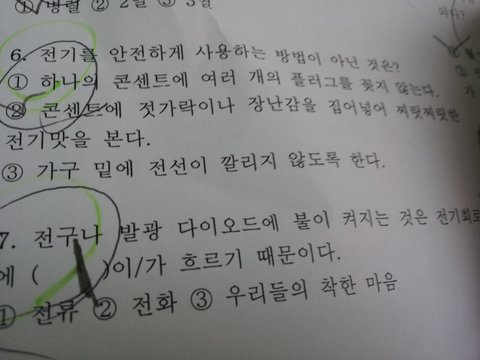 ① 병렬 ② 2월 ③ 3월
되나?
6. 전기를 안전하게 사용하는 방법이 아닌 것은?
① 하나의 콘센트에 여러 개의 플러그를 꽂지 않는다.
② 콘센트에 젓가락이나 장난감을 집어넣어 찌릿찌릿한
전기맛을 본다.
③ 가구 밑에 전선이 깔리지 않도록 한다.
7. 전구나 발광 다이오드에 불이 켜지는 것은 전기회로
에 ( )이/가 흐르기 때문이다.
① 전류 ② 전화 ③ 우리들의 착한 마음